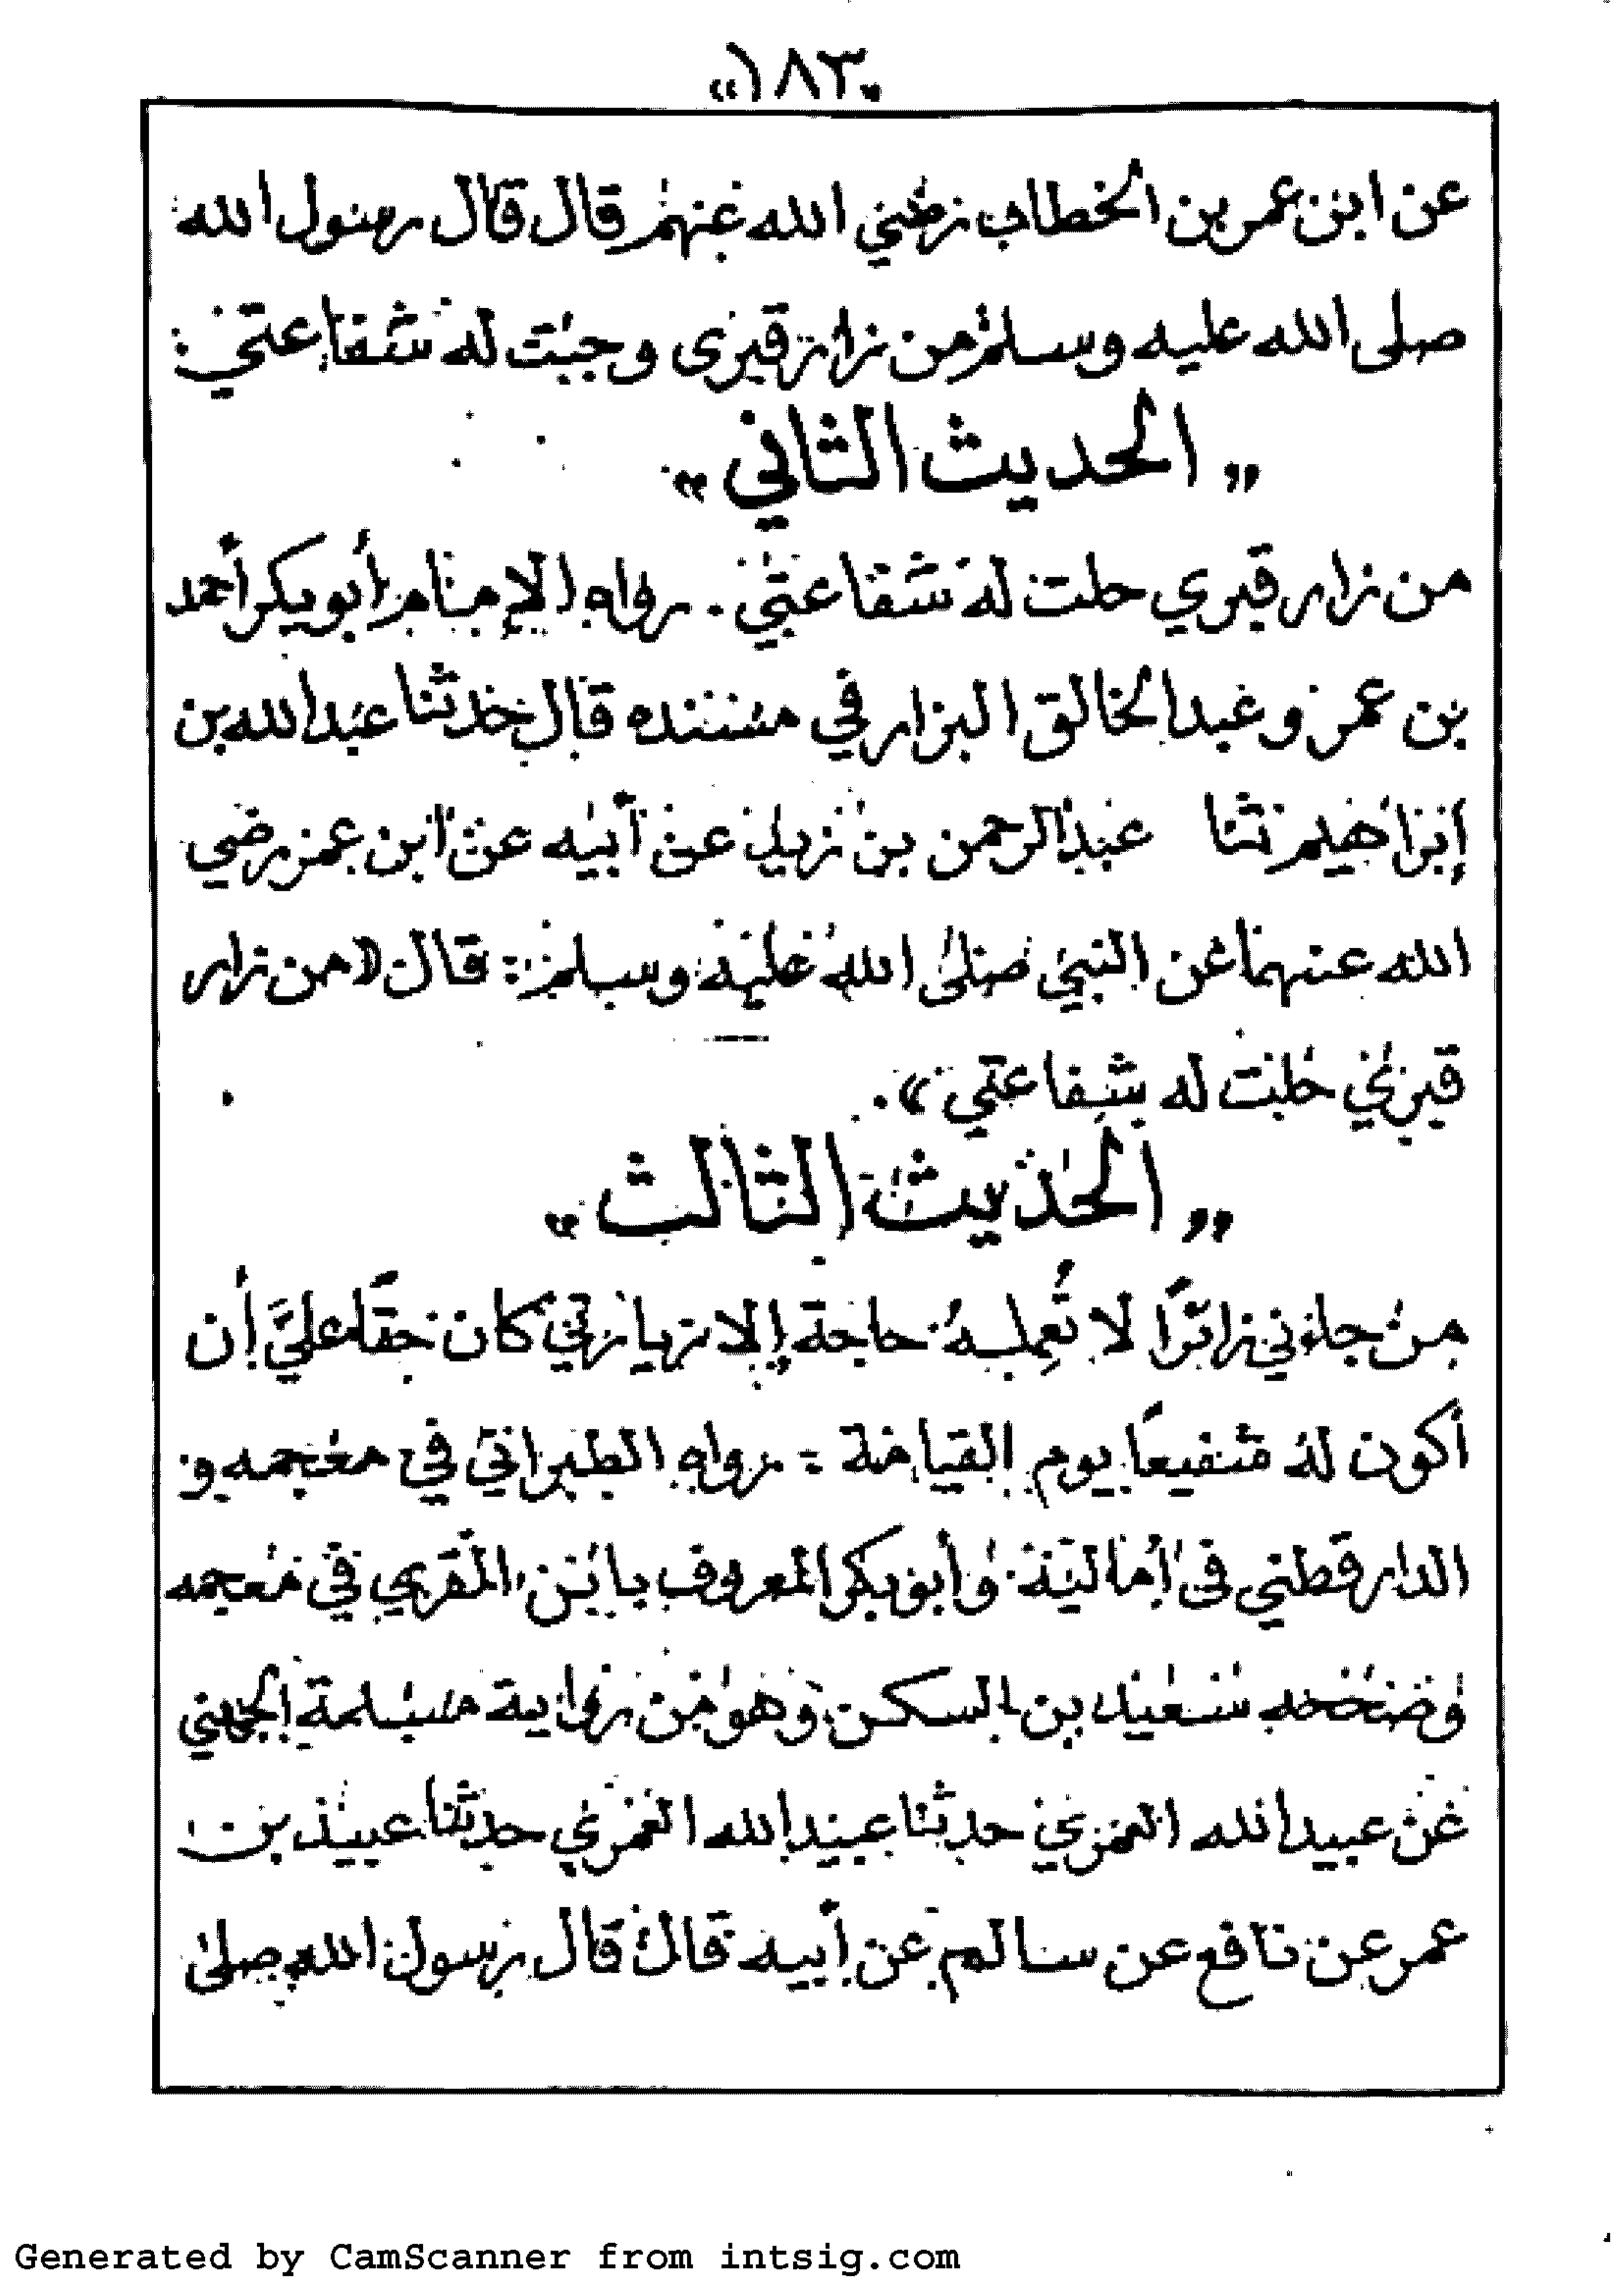 «١٨٣»
عن ابن عمر بن الخطاب رضي الله عنهم قال قال رسول الله
صلى الله عليه وسلم من زار قبرى وجبت له شفاعتي:
„ الحديث الثاني “
من زار قبري حلت له شفاعتي . رواه الإمام أبو بكر أحمد
بن عمر و عبد الخالق البزار في مسنده قال حدثنا عبد الله بن
إبراهيم ثنا عبد الرحمن بن زيد عن أبيه عن ابن عمر رضي
الله عنهما عن النبي صلى الله عليه وسلم : قال « من زار
قبري حلت له شفاعتي » .
„ الحديث الثالث “
من جاءني زائرًا لا تُعمِله حاجة إلا زيارتي كان حقًا عليَّ أن
أكون له شفيعًا يوم القيامة : رواه الطبراني في معجمه و
الدارقطني فى أماليه وأبو بكر المعروف بابن المقري في معجمه
وصححه سعيد بن السكن وهو من رواية مسلمة الجهني
عن عبيد الله العمري حدثنا عبيد الله العمري حدثنا عبيد بن
عمر عن نافع عن سالم عن أبيه قال قال رسول الله صلى
Generated by CamScanner from intsig.com